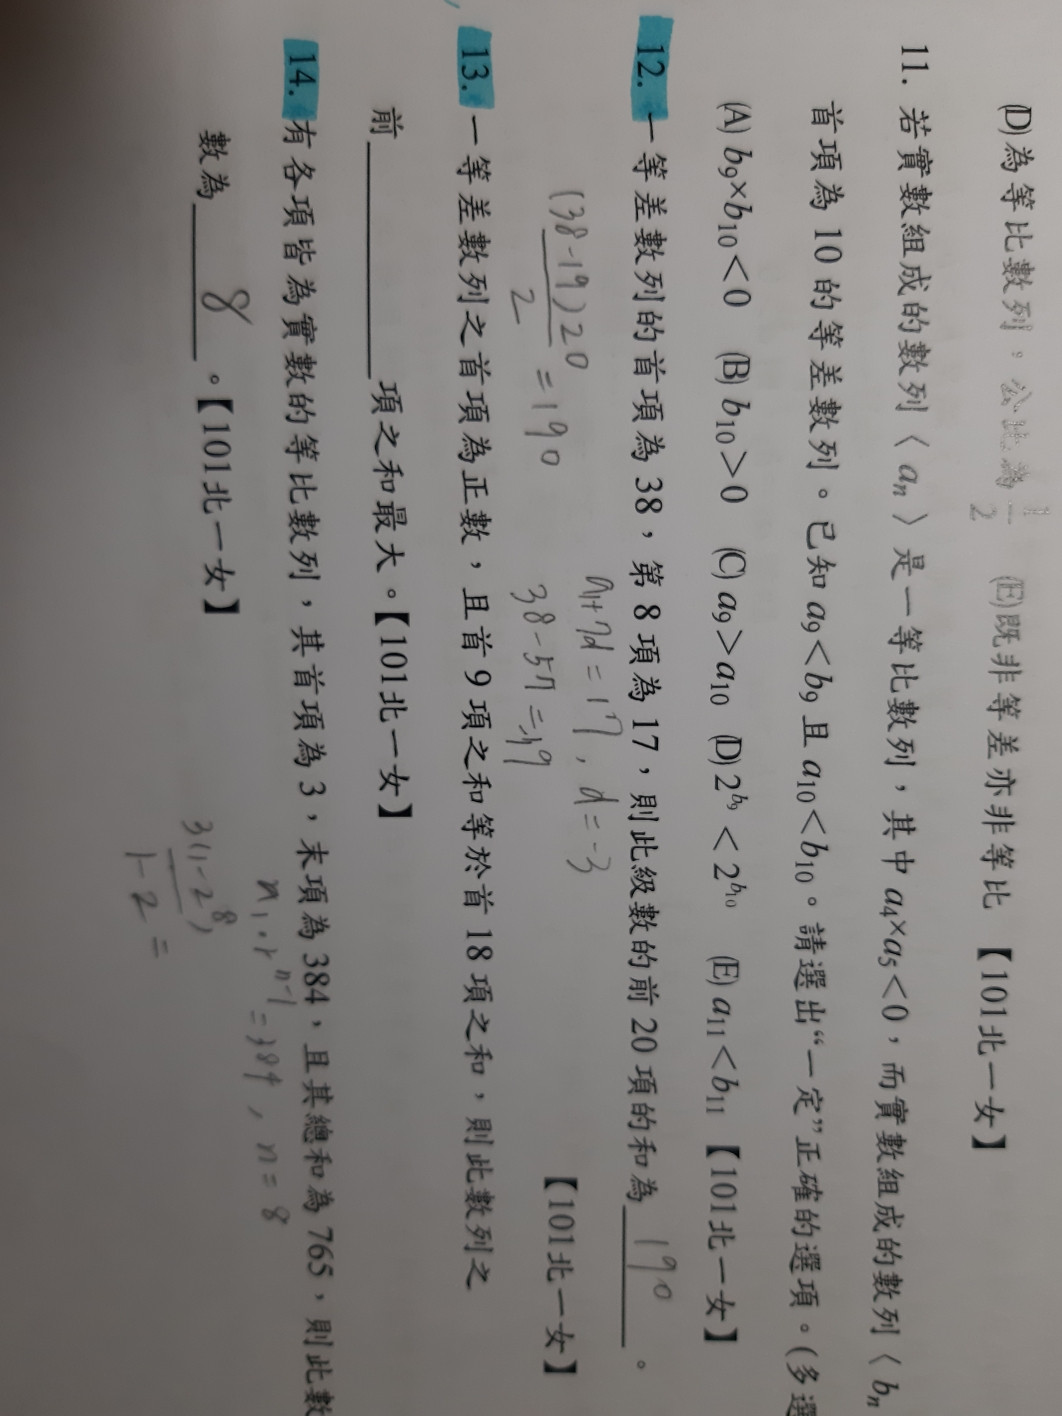 (D)為等比數列。公比為 1/2 (E)既非等差亦非等比 【101北一女】
11. 若實數組成的數列〈an〉是一等比數列，其中 a4×a5<0，而實數組成的數列〈bn
首項為 10 的等差數列。已知 a9<b9 且 a10<b10。請選出“一定”正確的選項。(多選
(A) b9×b10<0 (B) b10>0 (C) a9>a10 (D) 2^b9 < 2^b10 (E) a11<b11 【101北一女】
12. 一等差數列的首項為 38，第 8 項為 17，則此級數的前 20 項的和為 190 。
a1+7d=17, d=-3
【101北一女】
(38-19)20/2 =190
38-57=-19
13. 一等差數列之首項為正數，且首 9 項之和等於首 18 項之和，則此數列之
前 項之和最大。【101北一女】
14. 有各項皆為實數的等比數列，其首項為 3，末項為 384，且其總和為 765，則此數
a1·r^n-1=384, n=8
數為 8 。【101北一女】
3(1-2^8)/1-2 =